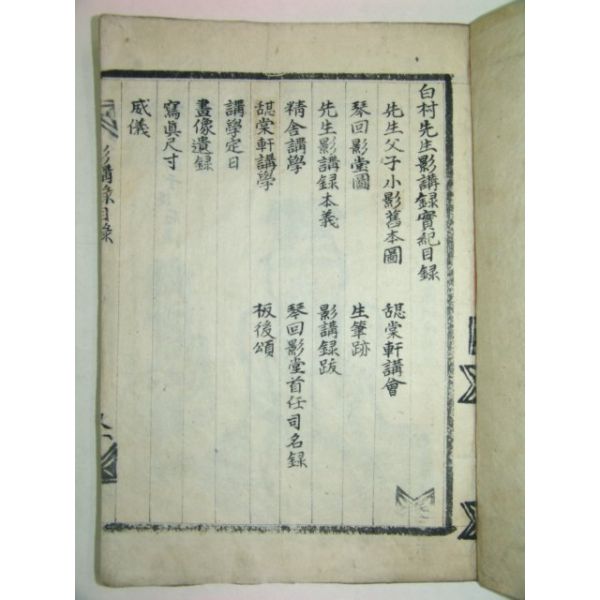 白村先生影講録實紀目録
先生父子小影舊本圖
憩棠軒講會
琴回影堂圖
生筆跡
先生影講録本義
影講録跋
精舍講學
琴回影堂首任司名録
憩棠軒講學
板後頌
講學定日
畫像遺録
寫眞尺寸
威儀
影講録目錄